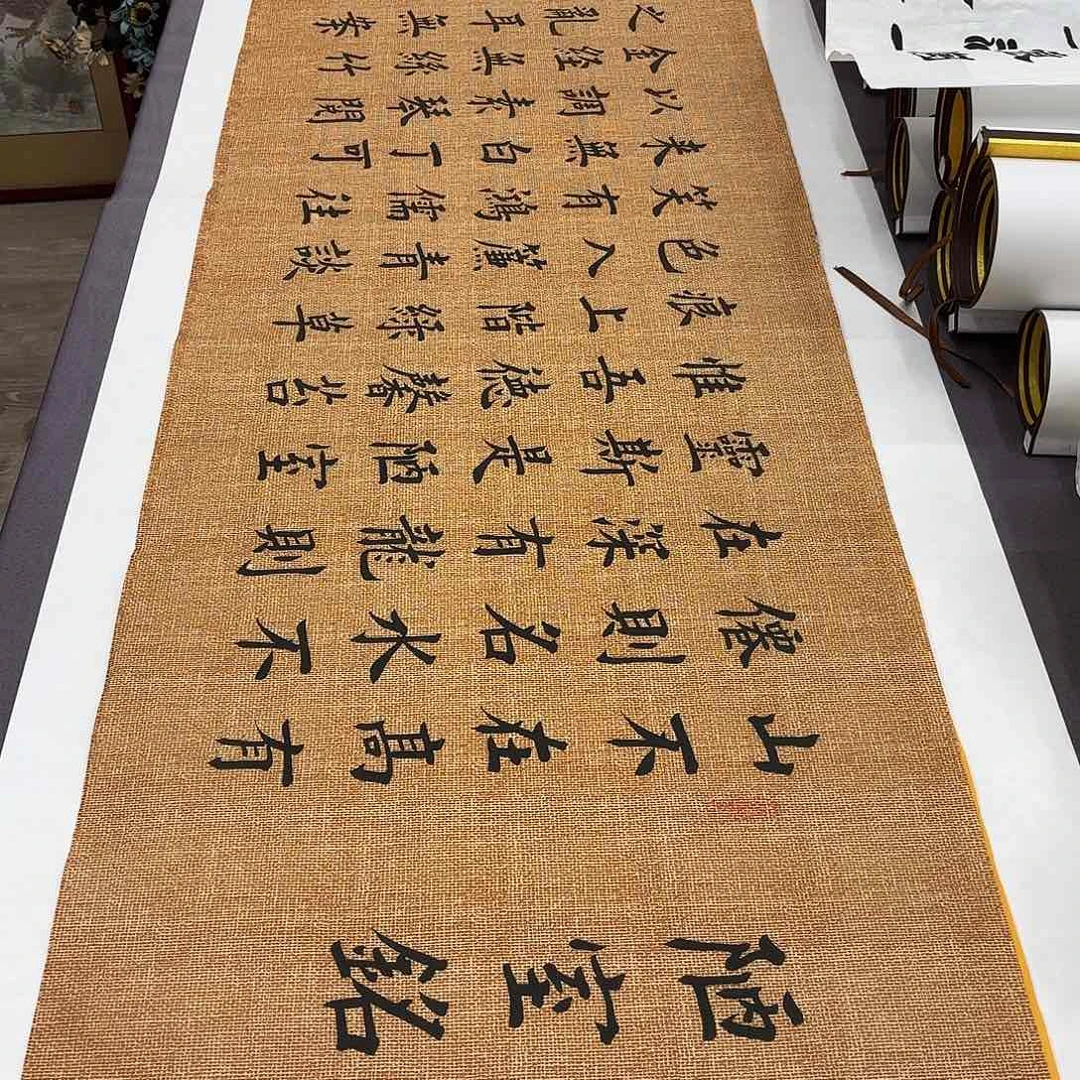 陋室銘
山不在髙有
僊則名水不
在深有龍則
靈斯是陋室
惟吾德馨苔
痕上階綠草
色入簾青談
笑有鴻儒往
來無白丁可
以調素琴閱
金經無絲竹
之亂耳無案